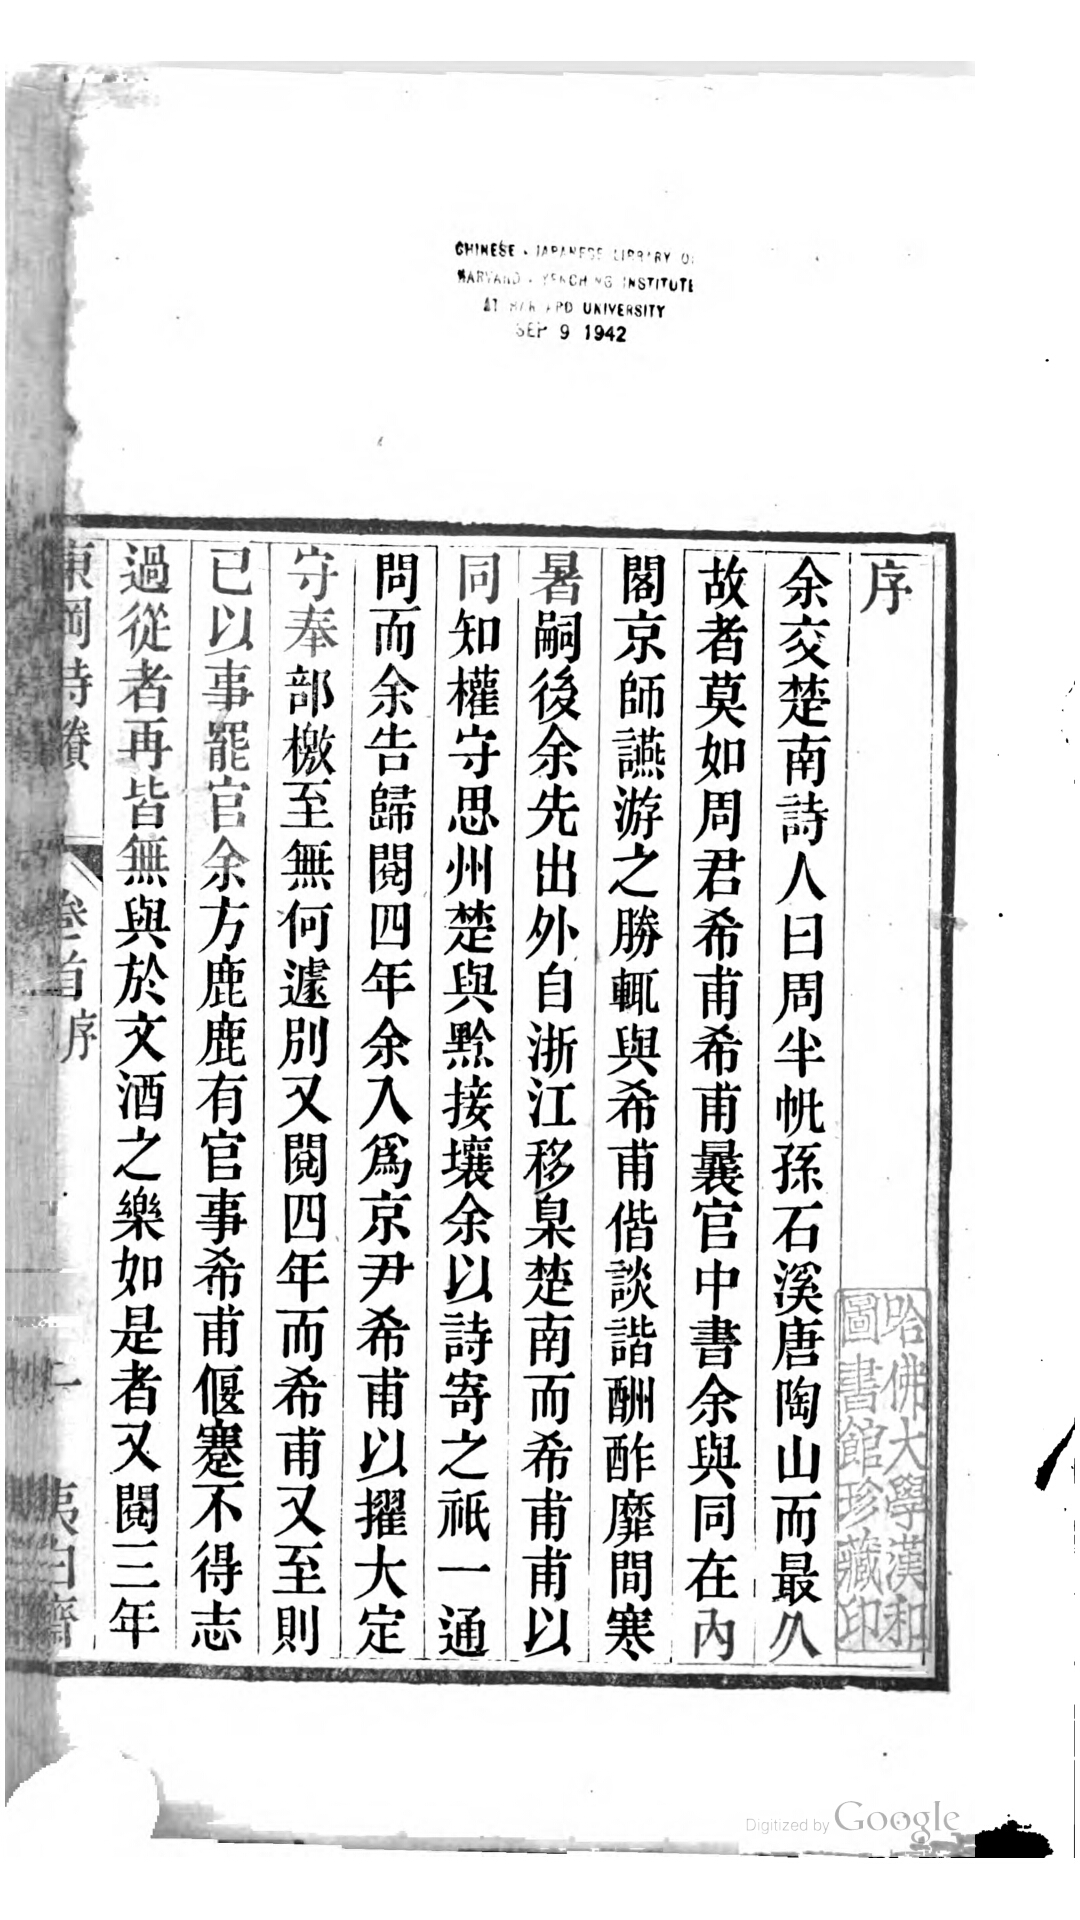 序
余交楚南詩人曰周半帆孫石溪唐陶山而最久
故者莫如周君希甫希甫曩官中書余與同在內
閣京師讌游之勝輒與希甫偕談諧酬酢靡間寒
暑嗣後余先出外自浙江移臬楚南而希甫甫以
同知權守思州楚與黔接壤余以詩寄之祇一通
問而余告歸閱四年余入爲京尹希甫以擢大定
守奉部檄至無何遽別又閱四年而希甫又至則
已以事罷官余方鹿鹿有官事希甫偃蹇不得志
過從者再皆無與於文酒之樂如是者又閱三年
東岡詩賸
卷首序
哈佛大學漢和
圖書館珍藏印
CHINESE - JAPANESE LIBRARY OF
HARVARD - YENCHING INSTITUTE
AT HARVARD UNIVERSITY
SEP 9 1942
Digitized by Google